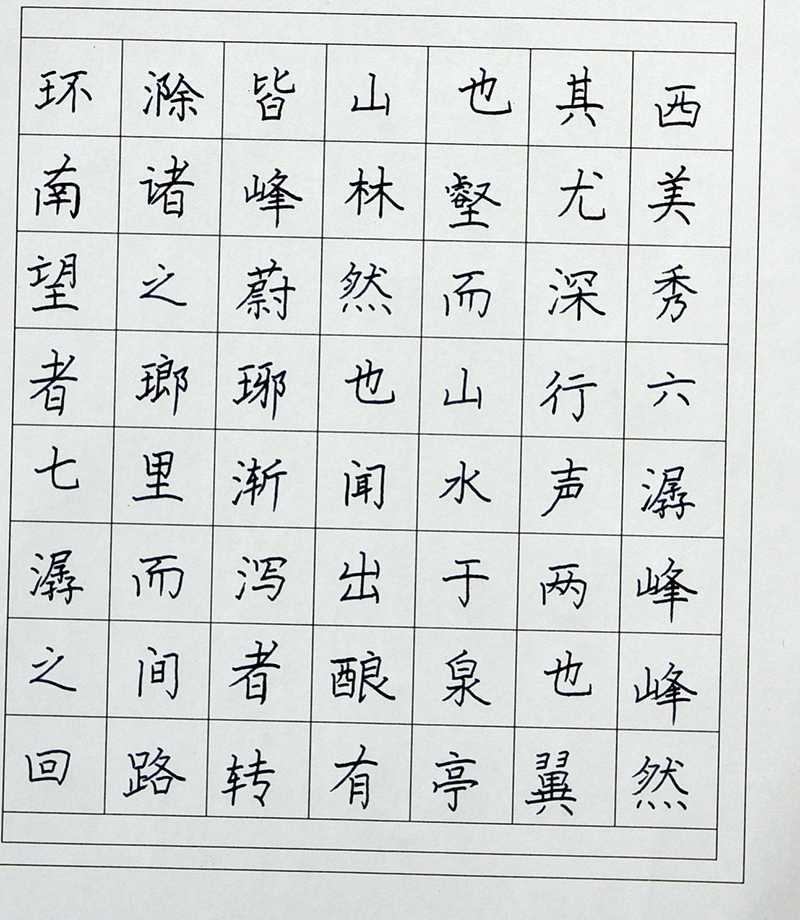 环滁皆山也其西
南诸峰林壑尤美
望之蔚然而深秀
者瑯琊也山行六
七里渐闻水声潺
潺而泻出于两峰
之间者酿泉也峰
回路转有亭翼然